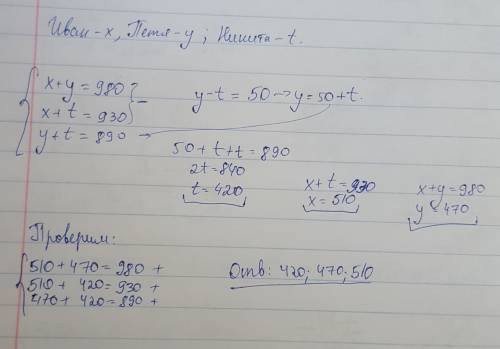 Иван - x, Петя - y; Никита - t.
x+y=980
x+t=930
y+t=890 →
y-t=50 → y=50+t.
50+t+t=890
2t=840
t=420
x+t=930
x=510
x+y=980
y=470
Проверим:
510+470=980 +
510+ 420=930 +
470+ 420=890 +
Отв: 420; 470; 510